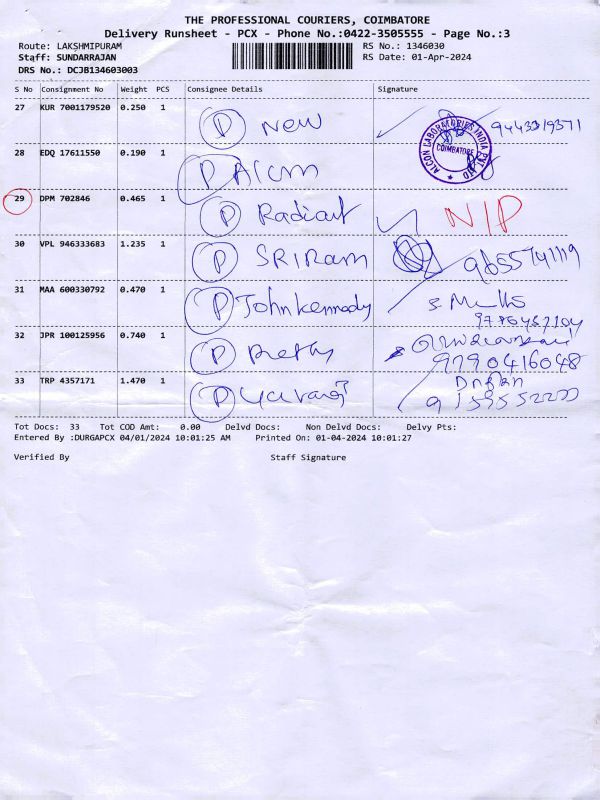 THE PROFESSIONAL COURIERS, COIMBATORE
Delivery Runsheet - PCX - Phone No.:0422-3505555 - Page No.:3
Route: LAKSHMIPURAM RS No.: 1346030
Staff: SUNDARRAJAN RS Date: 01-Apr-2024
DRS No.: DCJB134603003
S No Consignment No Weight PCS Consignee Details Signature
27 KUR 7001179520 0.250 1 P New 9443319371
ALCON LABORATORIES INDIA PVT LTD
COIMBATORE
28 EDQ 17611550 0.190 1 P Alcon
29 DPM 702846 0.465 1 P Radiant N/P
30 VPL 946333683 1.235 1 P SRIRam
31 MAA 600330792 0.470 1 P John Kennedy
32 JPR 100125956 0.740 1 P 9790416048
33 TRP 4357171 1.470 1 P
Tot Docs: 33 Tot COD Amt: 0.00 Delvd Docs: Non Delvd Docs: Delvy Pts:
Entered By :DURGAPCX 04/01/2024 10:01:25 AM Printed On: 01-04-2024 10:01:27
Verified By Staff Signature